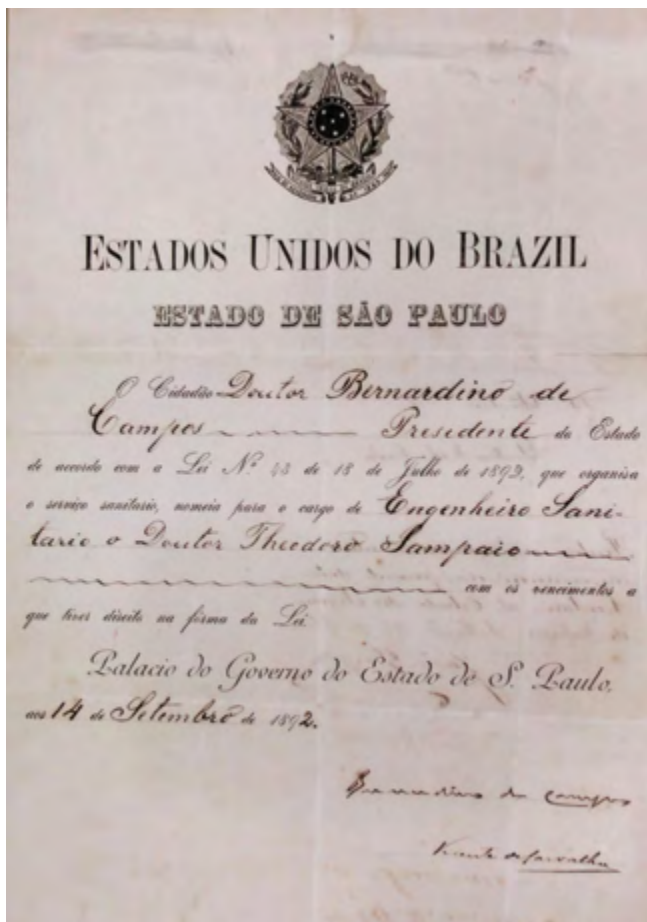 ESTADOS UNIDOS DO BRAZIL
ESTADO DE SÃO PAULO
O Cidadão Doutor Bernardino de
Campos Presidente do Estado
de accordo com a Lei Nº 43 de 18 de Julho de 1892, que organisa
o serviço sanitario, nomeia para o cargo de Engenheiro Sani-
tario o Doutor Theodoro Sampaio
com os vencimentos a
que tiver direito na fórma da Lei.
Palacio do Governo do Estado de S. Paulo,
aos 14 de Setembro de 1892.
Bernardino de Campos
Vicente de Carvalho